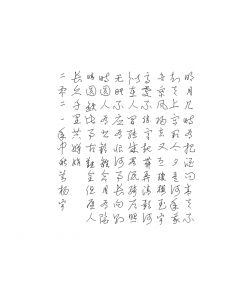 明月几时有把酒问青天不
知天上宫阙今夕是何年我
欲乘风归去又恐琼楼玉宇
高处不胜寒起舞弄清影何
似在人间转朱阁低绮户照
无眠不应有恨何事长向别
时圆人有悲欢离合月有阴
晴圆缺此事古难全但愿人
长久千里共婵娟
二零二一年中秋 杨宇